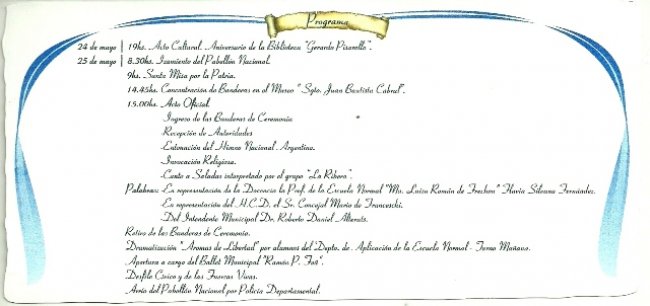 Programa
24 de mayo | 19hs. Acto Cultural. Aniversario de la Biblioteca "Gerardo Pisarello".
25 de mayo | 8.30hs. Izamiento del Pabellón Nacional.
9hs. Santa Misa por la Patria.
14.45hs. Concentración de Banderas en el Museo " Sgto. Juan Bautista Cabral".
15.00hs. Acto Oficial.
-Ingreso de las Banderas de Ceremonia
-Recepción de Autoridades
-Entonación del Himno Nacional Argentino.
-Invocación Religiosa.
-Canto a Saladas interpretado por el grupo "La Ribera".
Palabras: -En representación de la Docencia la Prof. de la Escuela Normal "Ma. Luisa Román de Frechou" Flavia Silvana Fernández.
-En representación del H.C.D. el Sr. Concejal Mario de Francescki.
-Del Intendente Municipal Dr. Roberto Daniel
Retiro de las Banderas de Ceremonia.
Dramatización "Aromas de Libertad" por alumnos del Dpto. de Aplicación de la Escuela Normal - Turno Mañana.
Apertura a cargo del Ballet Municipal "Ramón P.
Desfile Cívico y de las Fuerzas Vivas.
Arrío del Pabellón Nacional por Policía Departamental.